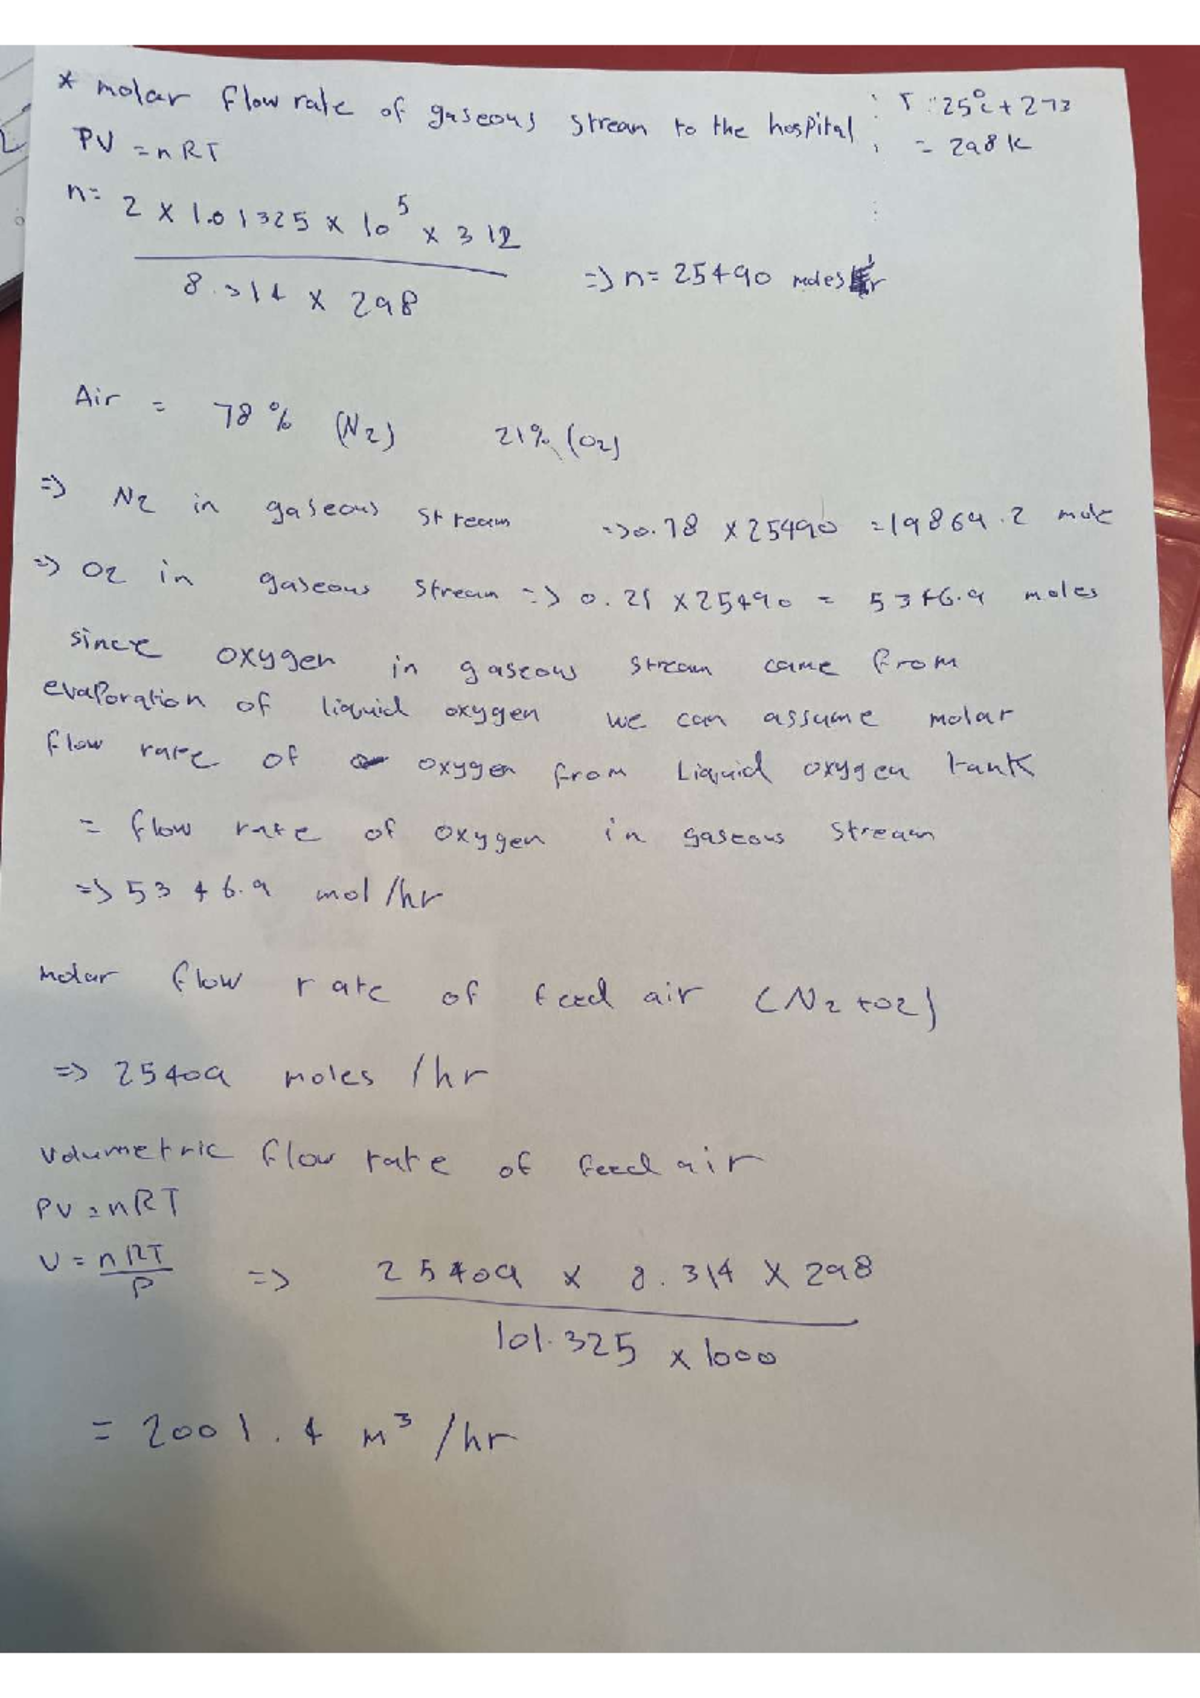 * molar flow rate of gaseous stream to the hospital
T = 25°c + 273
= 298 K
PV = nRT
n = 2 x 1.01325 x 10^5 x 312
8.314 x 298
=> n = 25490 moles
Air = 78% (N2) 21% (O2)
=> N2 in gaseous stream => 0.78 x 25490 = 19864.2 mole
=> O2 in gaseous stream => 0.21 x 25490 = 5346.9 moles
since oxygen in gaseous stream came from
evaporation of liquid oxygen we can assume molar
flow rate of oxygen from Liquid oxygen tank
= flow rate of oxygen in gaseous stream
=> 5346.9 mol/hr
molar flow rate of feed air (N2+O2)
=> 25409 moles /hr
volumetric flow rate of feed air
PV = nRT
V = nRT
P
=> 25409 x 8.314 x 298
101.325 x 1000
= 2001.4 m³/hr